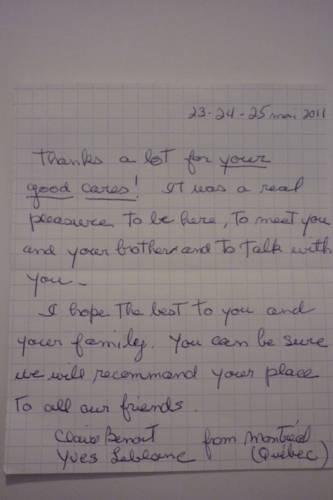 23-24-25 mai 2011
Thanks a lot for your
good cares! It was a real
pleasure to be here, to meet you
and your brother and to talk with
you.
I hope the best to you and
your family. You can be sure
we will recommand your place
to all our friends.
Claire Benoit from Montréal
Yves Leblanc (Québec)